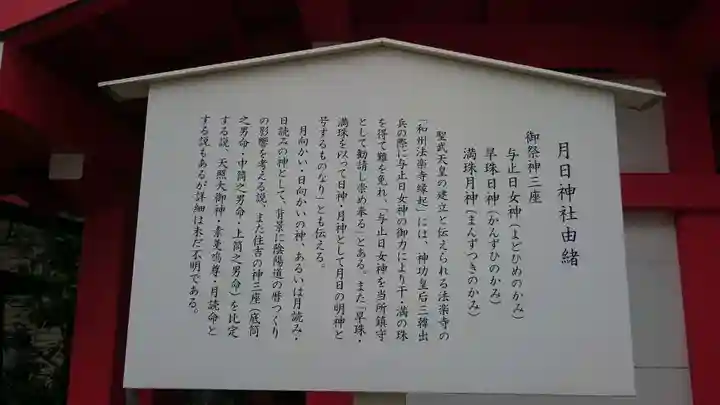 月日神社由緒
御祭神三座
与止日女神(よどひめのかみ)
旱珠日神(かんずひのかみ)
満珠月神(まんずつきのかみ)
聖武天皇の建立と伝えられる法楽寺の
「和州法楽寺縁起」には、神功皇后三韓出
兵の際に与止日女神の御力により干・満の珠
を得て難を免れ、「与止日女神を当所鎮守
として勧請し崇め奉る」とある。また「旱珠・
満珠を以って日神・月神として月日の明神と
号するものなり」とも伝える。
月向かい・日向かいの神、あるいは月読み・
日読みの神として、背景に陰陽道の暦つくり
の影響を考える説、また住吉の神三座(底筒
之男命・中筒之男命・上筒之男命)を比定
する説、天照大御神・素戔嗚尊・月読命と
する説もあるが詳細は未だ不明である。